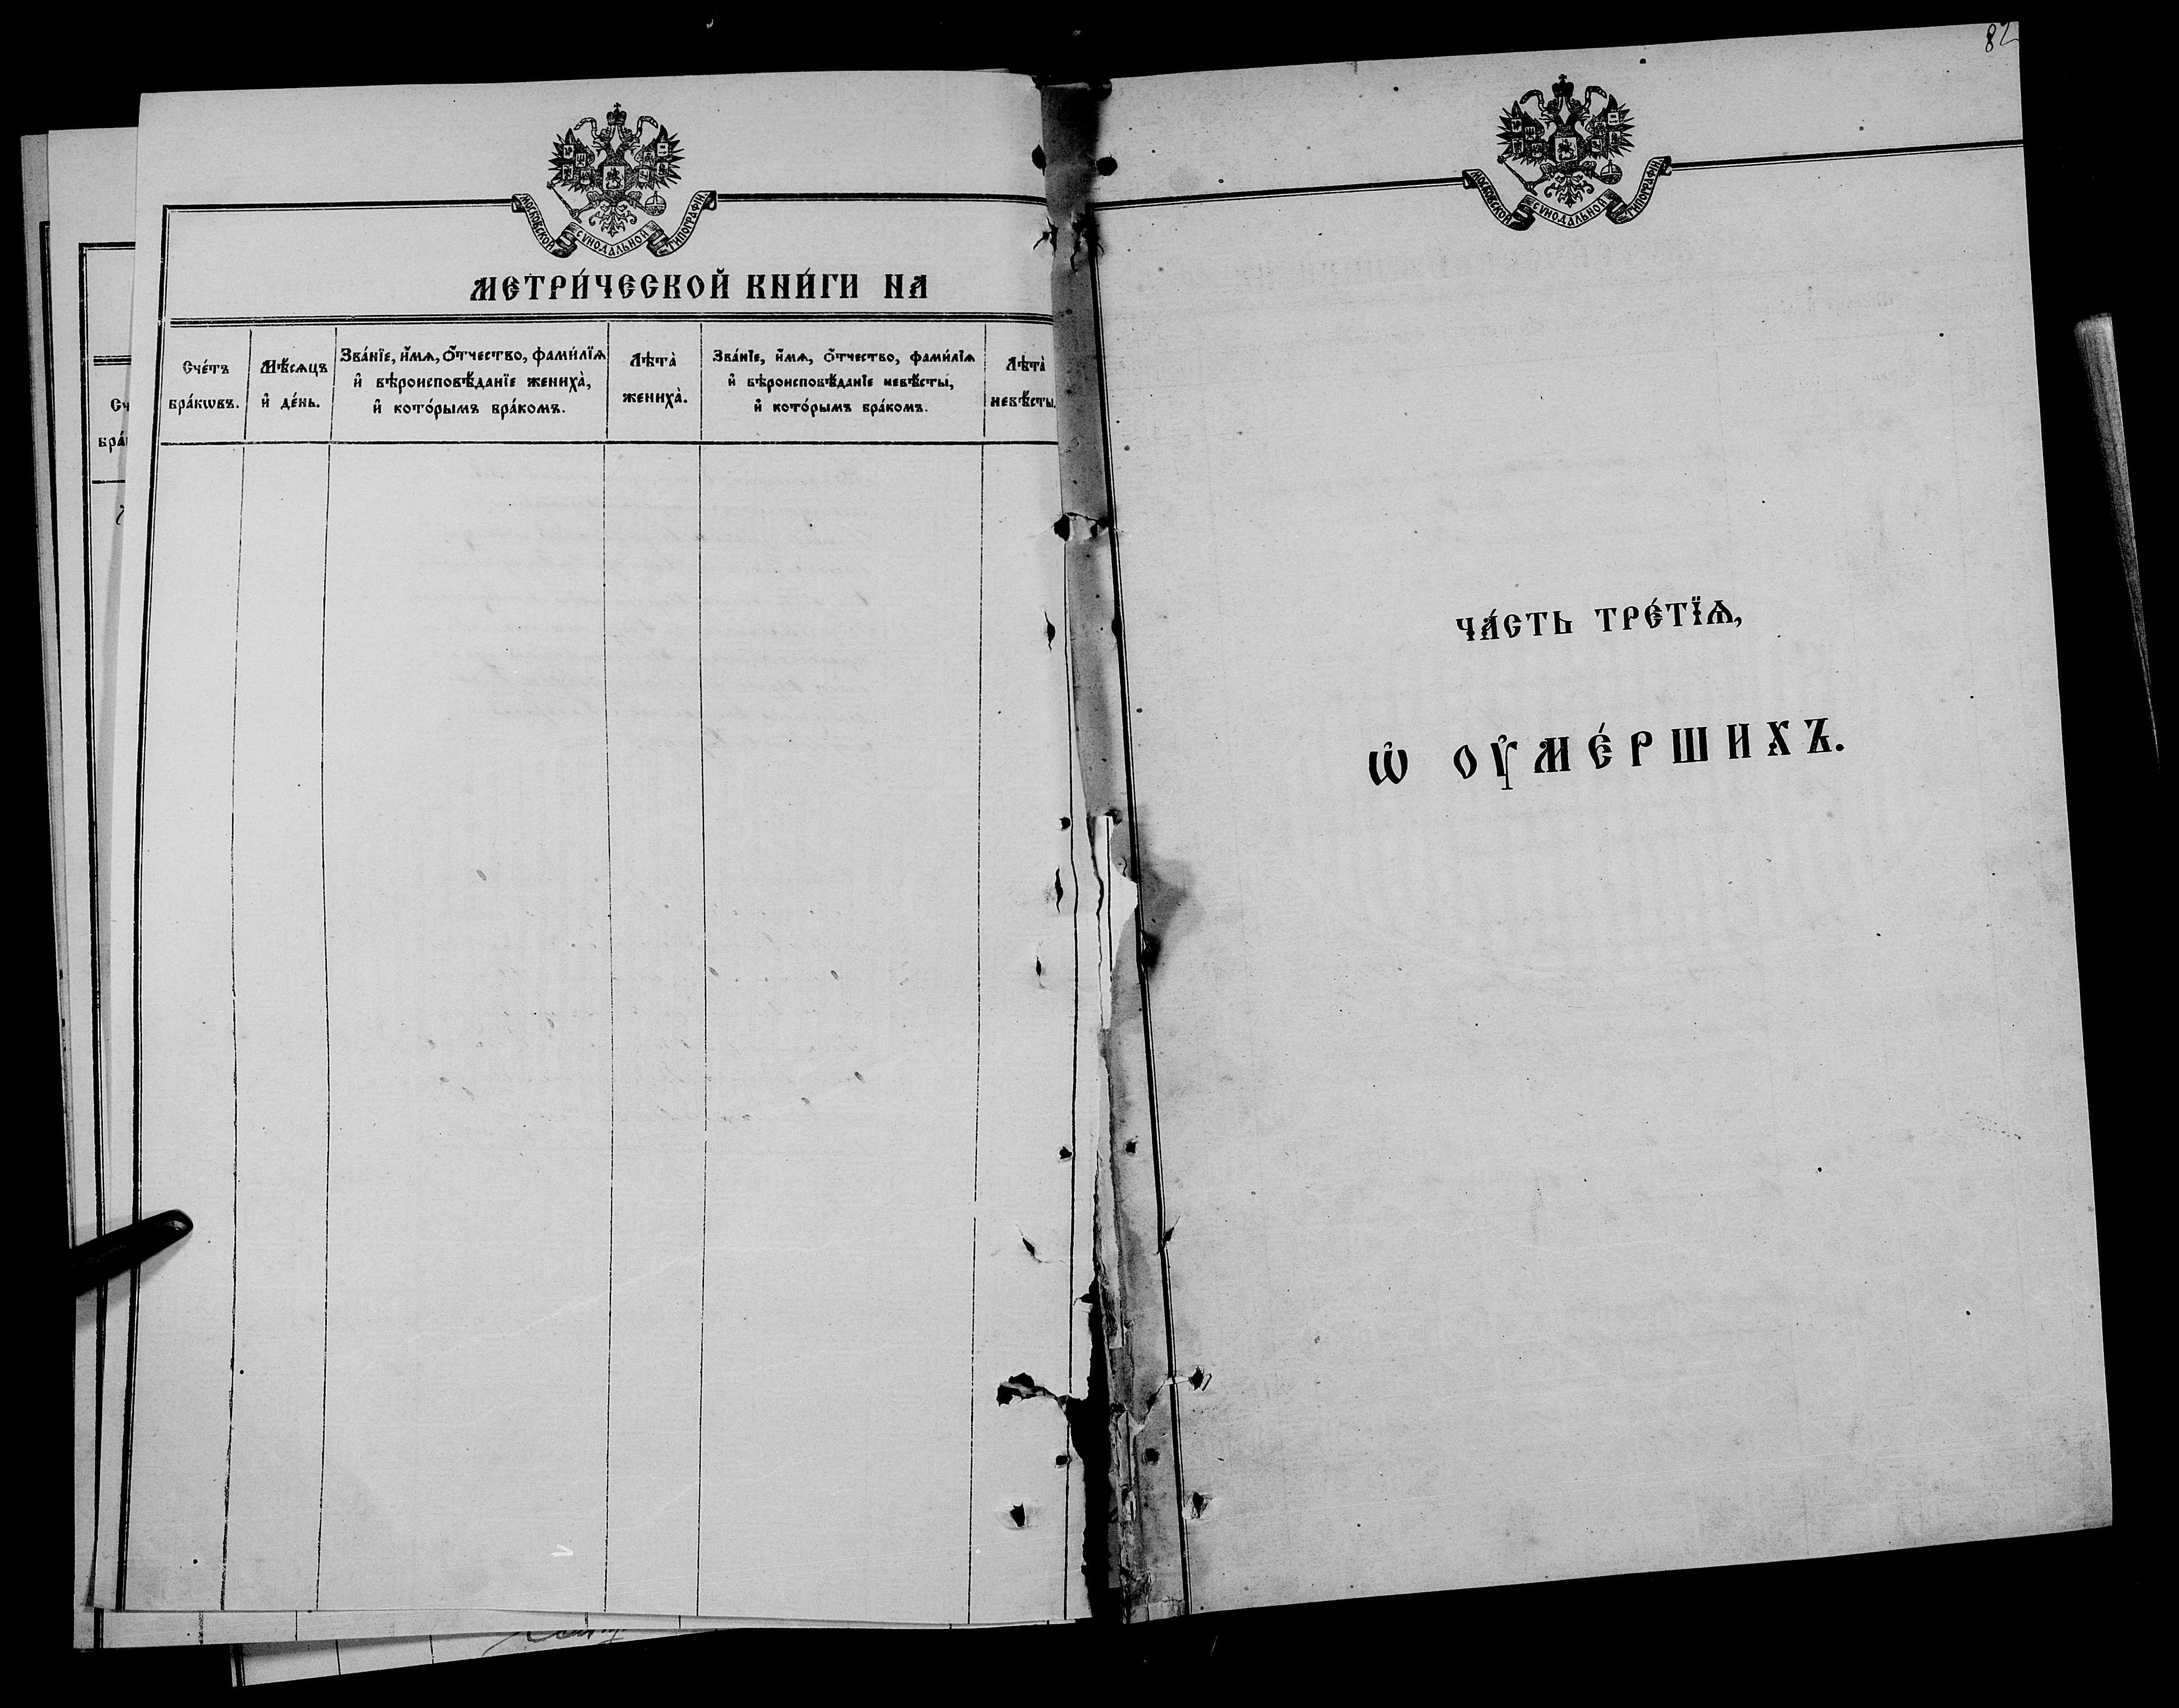 МОСКОВСКОЙ СѴНОДАЛЬНОЙ ТИПОГРАФІИ
МЕТРИ́ЧЕСКОЙ КНИ́ГИ НА
Сче́тъ
бра́кѡвъ.
Мѣ́сѧцъ
и҆ де́нь.
Зва́нїе, и҆́мѧ, ѻ҆́тчество, фами́лїѧ
и҆ вѣроисповѣ́данїе жениха̀,
и҆ кото́рымъ бра́комъ.
Лѣ́та̀
жениха̀.
Зва́нїе, и҆́мѧ, ѻ҆́тчество, фами́лїѧ
и҆ вѣроисповѣ́данїе невѣ́сты,
и҆ кото́рымъ бра́комъ.
Лѣ́та̀
невѣ́сты.
82
МОСКОВСКОЙ СѴНОДАЛЬНОЙ ТИПОГРАФІИ
ЧА́СТЬ ТРЕ́ТЇѦ,
Ѡ҆ ОУ҆МЕ́РШИХЪ.